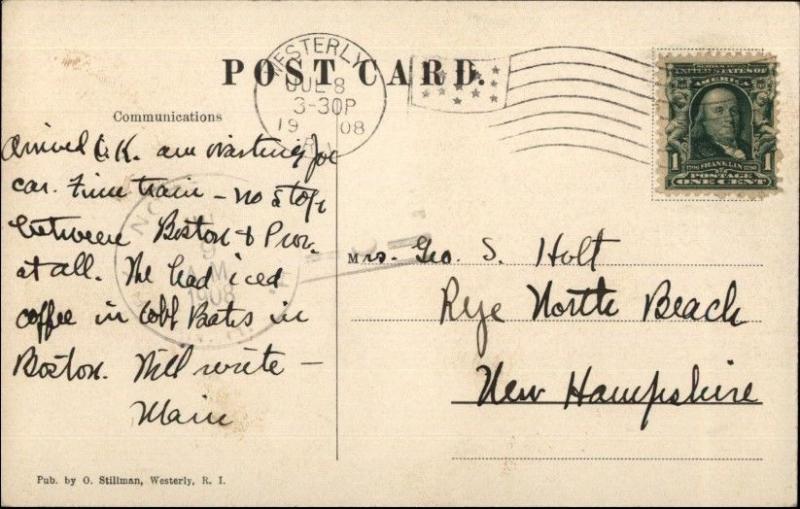 POST CARD.
WESTERLY
JUL 8
3-30P
1908
R.I.
UNITED STATES OF
AMERICA
1 FRANKLIN 1
POSTAGE
ONE CENT
Communications
Arrived O.K. am waiting for
car. Fine train – no stops
between Boston & Prov.
at all. We had iced
coffee in Cobb Bates in
Boston. Will write –
9
AM
1908
Mrs. Geo. S. Holt
Rye North Beach
New Hampshire
Pub. by O. Stillman, Westerly, R. I.